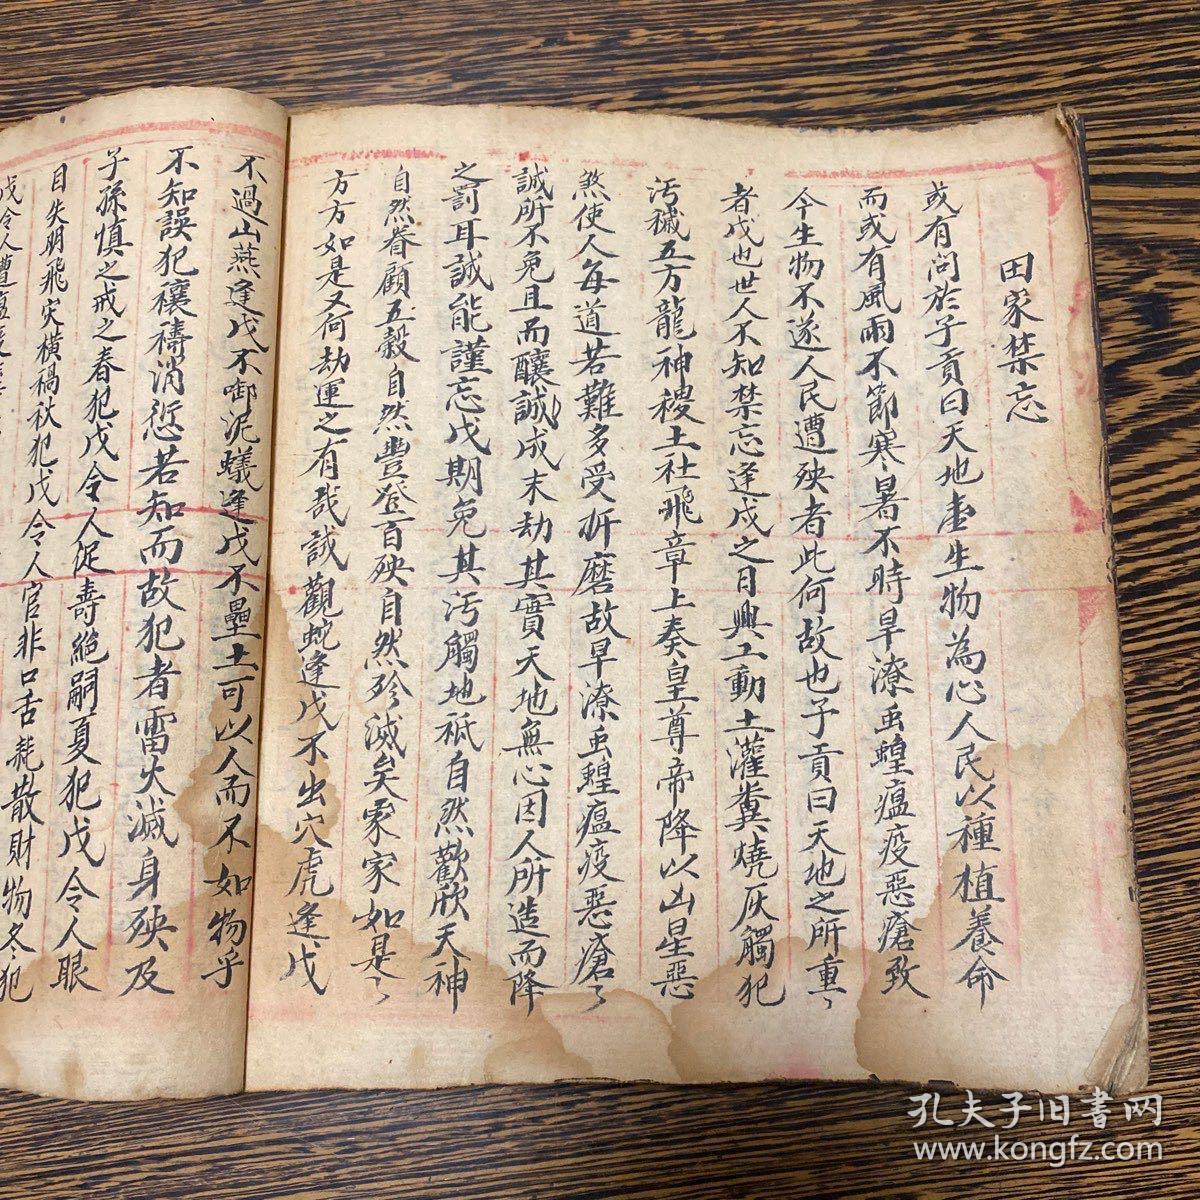 田家禁忘
或有問於子貢曰天地盡生物為心人民以種植養命
而或有風雨不節寒暑不時旱潦虫蝗瘟疫惡瘡致
今生物不遂人民遭殃者此何故也子貢曰天地之所重〻
者戊也世人不知禁忘逢戊之日興工動土灌糞燒灰觸犯
污穢五方龍神稷土社飛章上奏皇尊帝降以凶星惡
煞使人每道若難多受折磨故旱潦虫蝗瘟疫惡瘡〻
誠所不免且而釀誠成末劫其實天地無心因人所造而降
之罰耳誠能謹忘戊期免其污觸地祇自然歡欣天神
自然眷顧五穀自然豐登百殃自然殄滅矣家家如是〻
方方如是又何劫運之有哉誠觀蛇逢戊不出穴虎逢戊
不過山燕逢戊不啣泥蟻逢戊不壘土可以人而不如物乎
不知誤犯禳禱消愆若知而故犯者雷火滅身殃及
子孫慎之戒之春犯戊令人促壽絕嗣夏犯戊令人眼
目失明飛灾橫禍秋犯戊令人官非口舌耗散財物冬犯
戊令人遭瘟
孔夫子旧书网
www.kongfz.com